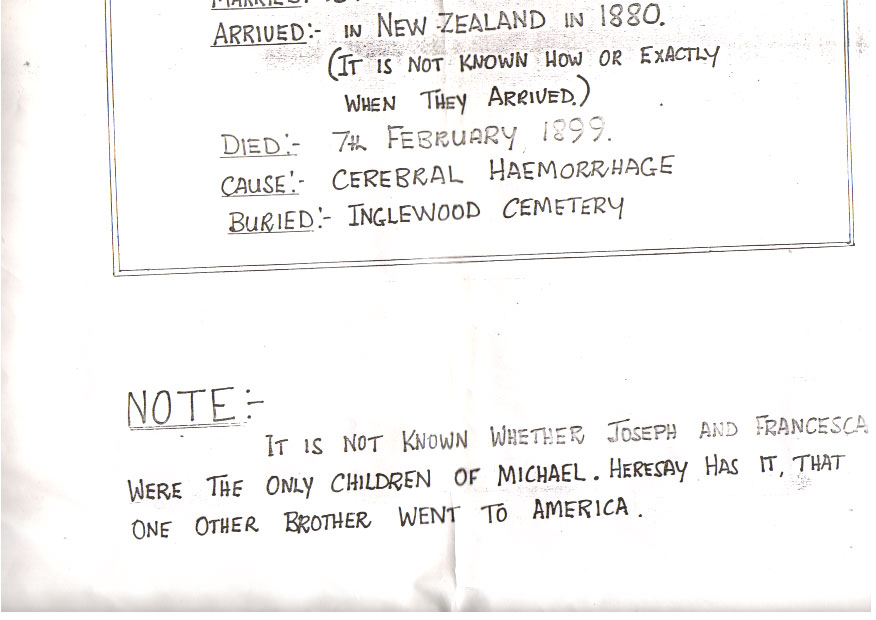 MARRIED:-
ARRIVED:- IN NEW ZEALAND IN 1880.
(IT IS NOT KNOWN HOW OR EXACTLY
WHEN THEY ARRIVED.)
DIED:- 7th FEBRUARY 1899.
CAUSE:- CEREBRAL HAEMORRHAGE
BURIED:- INGLEWOOD CEMETERY
NOTE:-
IT IS NOT KNOWN WHETHER JOSEPH AND FRANCESCA
WERE THE ONLY CHILDREN OF MICHAEL. HERESAY HAS IT, THAT
ONE OTHER BROTHER WENT TO AMERICA.